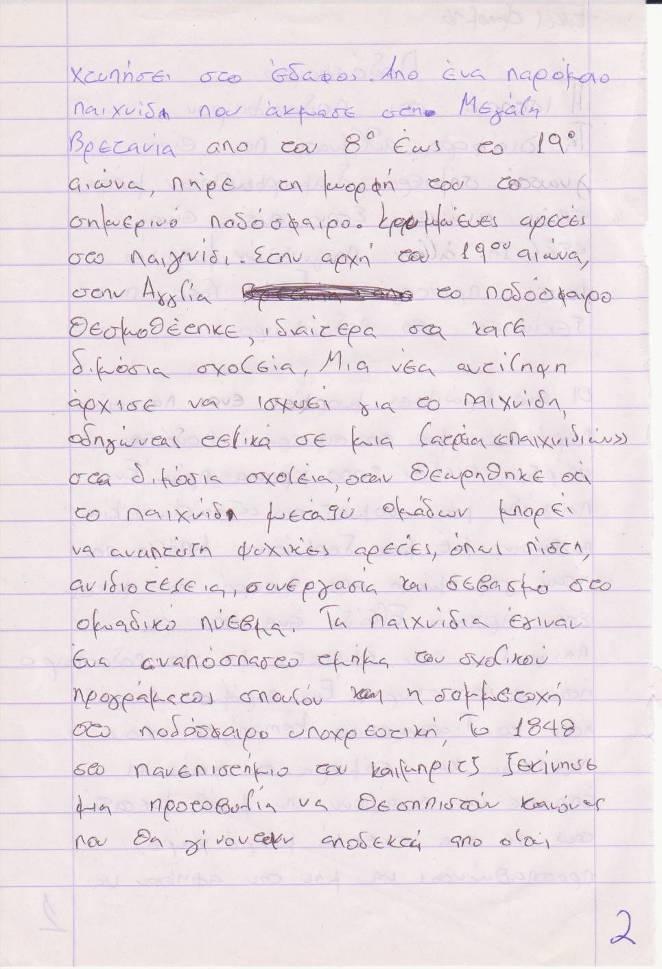 χτυπήσει στο έδαφος. Απο ένα παρόμοιο
παιχνίδι που άκμασε στη Μεγάλη
Βρετανία απο τον 8° έως το 19°
αιώνα, πήρε τη μορφή του το
σημερινό ποδόσφαιρο. Κρυμμένες αρετές
στο παιγνίδι. Στην αρχή του 19ου αιώνα,
στην Αγγλία το ποδόσφαιρο
θεσμοθέτηκε, ιδιαίτερα στα κατά
διμόσια σχολεία, Μια νέα αντίληψη
άρχισε να ισχυεί για το παιχνίδη,
οδηγώντας τελικά σε μια λατρεία «παιχνιδιών»
στα διμόσια σχολεία, όταν θεωρήθηκε ότι
το παιχνίδι μεταξύ ομάδων μπορεί
να αναπτύξη ψυχικές αρετές, όπως πίστη,
ανιδιοτέλεια, συνεργασία και σεβασμό στο
ομαδικό πνέυμα. Τα παιχνίδια έγιναν
ένα αναπόσπαστο τμημα του σχολικού
προγράματος σπουδών και η συμμετοχή
στο ποδόσφαιρο υποχρεοτική, Το 1848
στο πανεπιστήμιο του καιμπριτζ ξεκίνησε
μια προτοβυλία να θεσπιστούν κανόνες
που θα γίνονταν αποδεκτά απο όλοι,
2